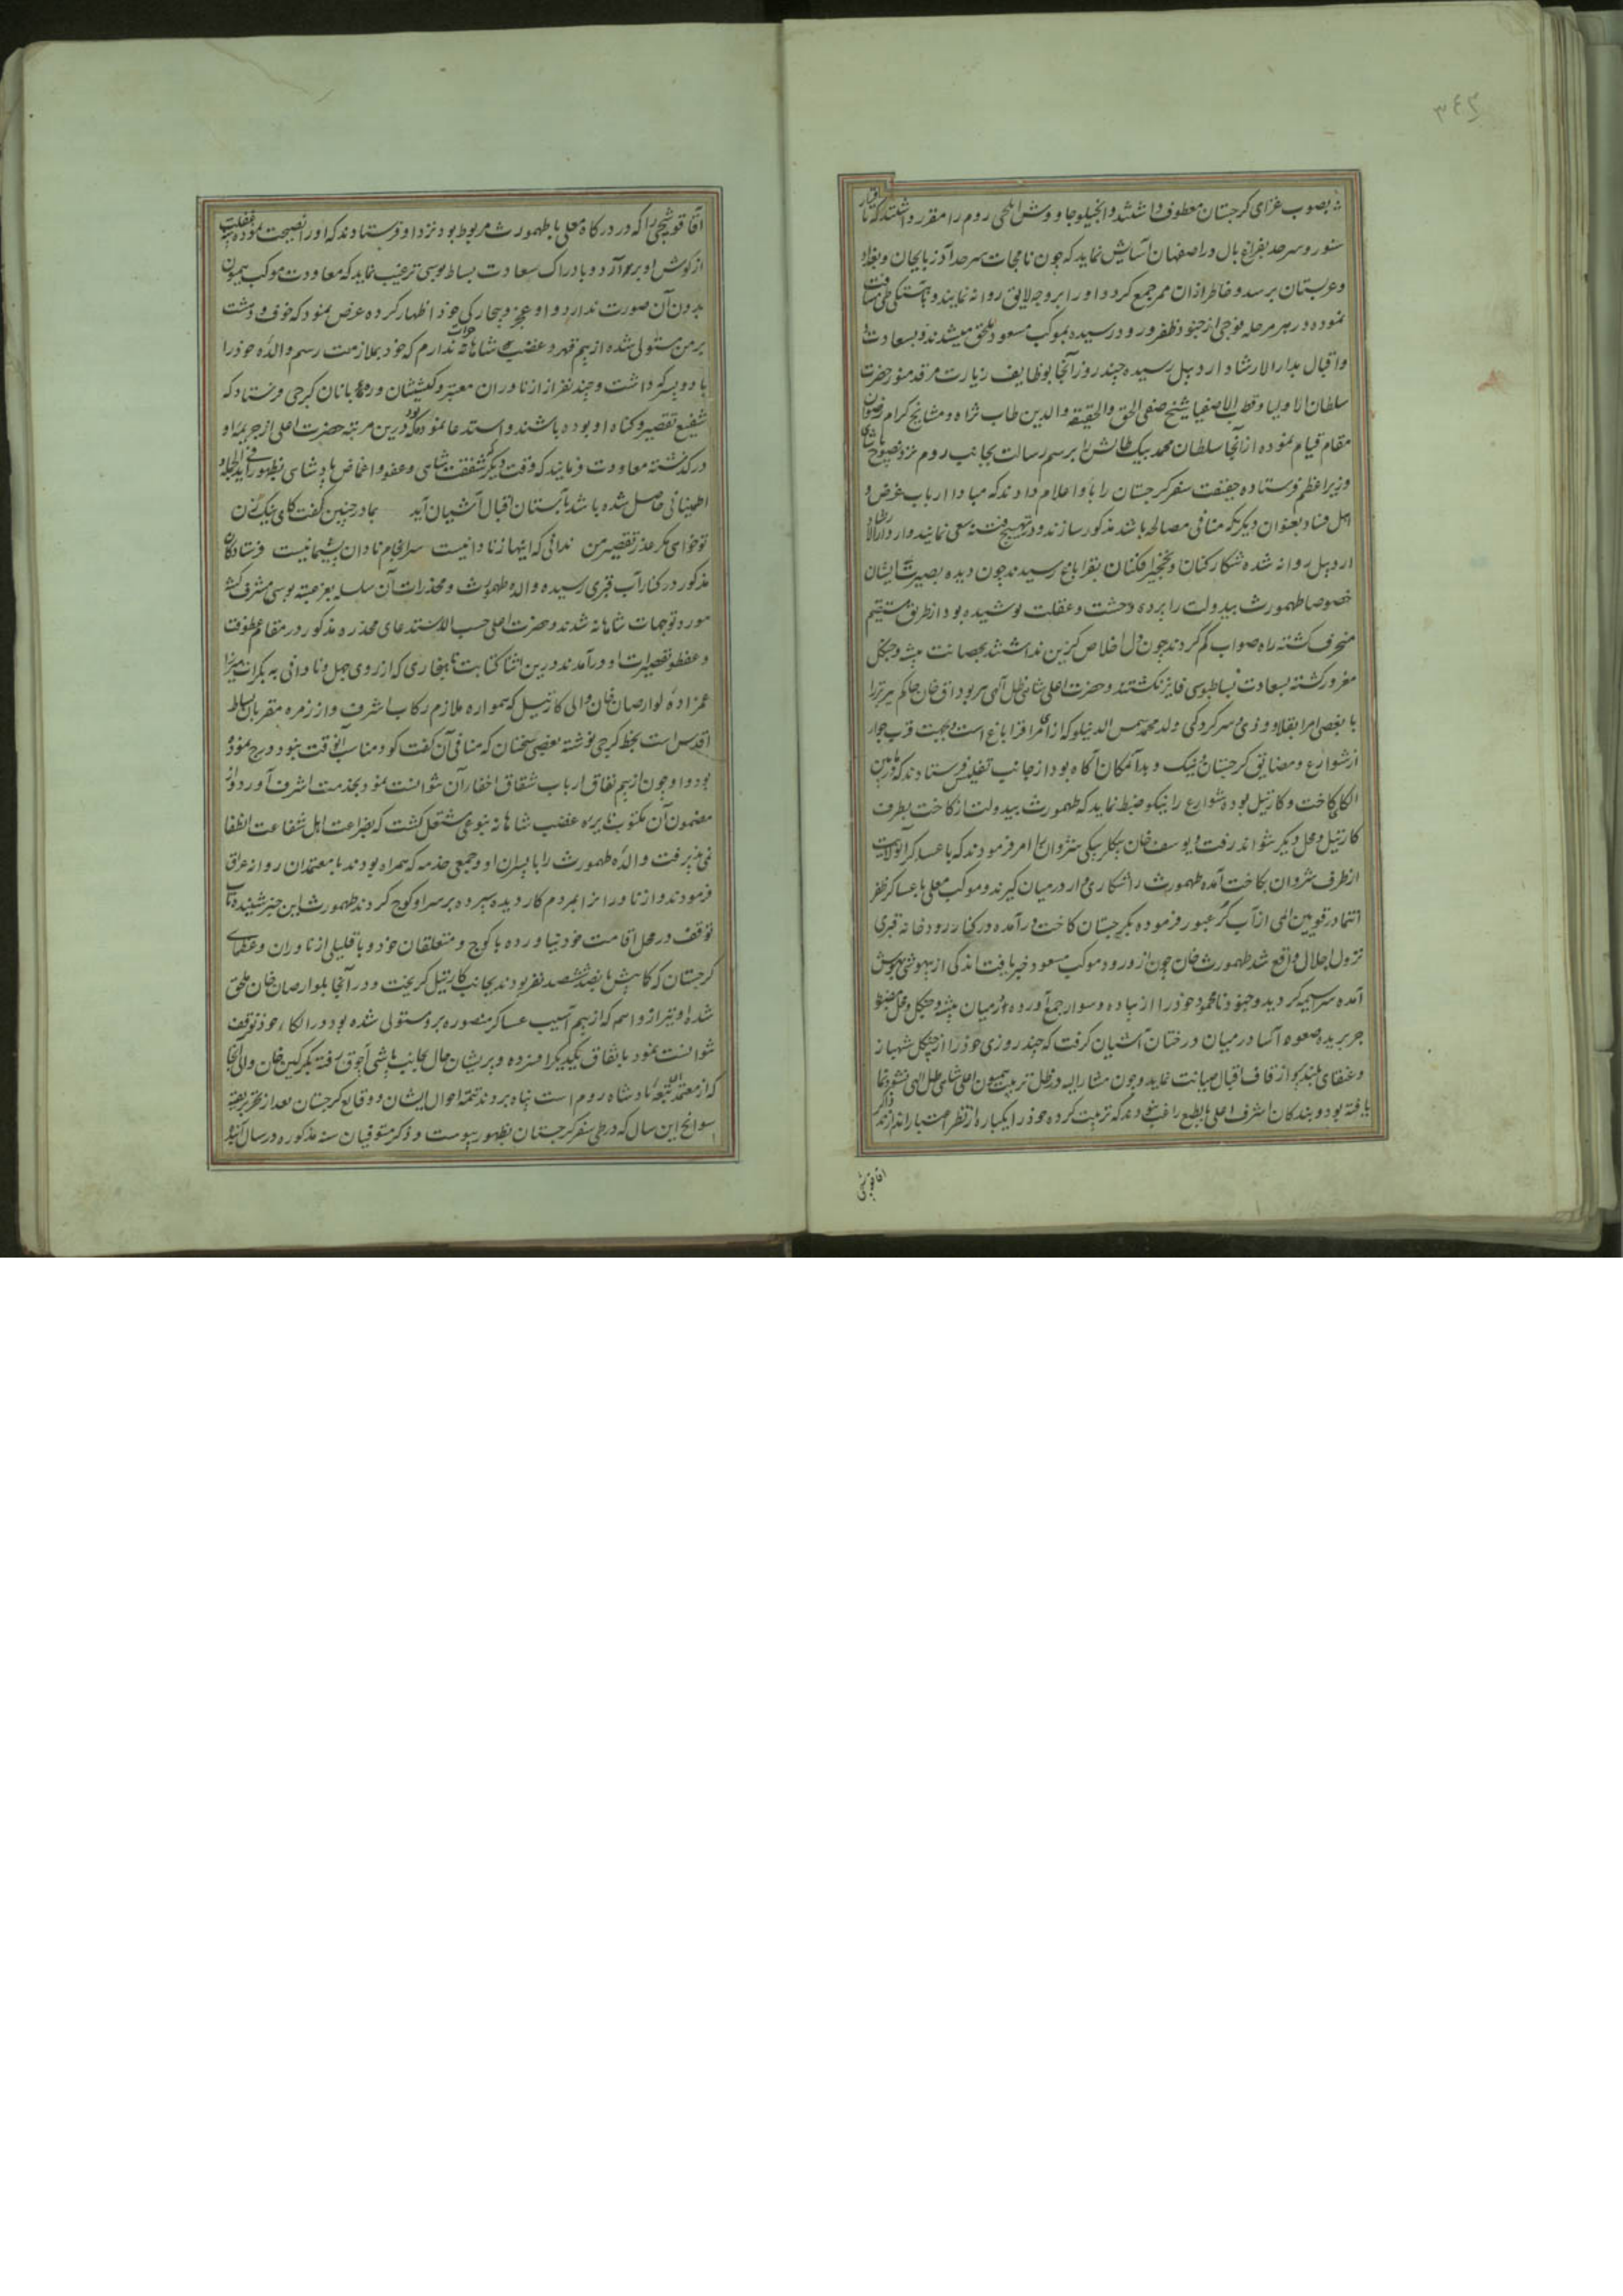 ۳۴۲
بصوب غزای کرجستان معطوف داشتند و انجیلو جاووش ایلچی روم را مقرر داشتند که تا
سنور و سرحد بفراغ بال در اصفهان آسایش نماید که چون نامجات سرحد آذربایجان و بغداد
و عربستان برسد و خاطر از آن ممر جمع کردد او را بر وجه لایق روانه نمایند و باهستکی طی مسافت
نموده در هر مرحله فوجی از جنود ظفر ورود رسیده بموکب مسعود ملحق میشدند و بسعادت
و اقبال بدار الارشاد اردبیل رسیده چند روز آنجا بوظایف زیارت مرقد منور حضرت
سلطان الاولیا و قطب الاصفیا شیخ صفی الحق و الحقیقة و الدین طاب ثراه و مشایخ کرام
مقام قیام نموده از آنجا سلطان محمد بیک طالش را برسم رسالت بجانب روم نزد نصوح پاشای
وزیر اعظم فرستاده حقیقت سفر کرجستان را باو اعلام دادند که مبادا ارباب غرض و
اهل فساد بعنوان دیگر که منافی مصالحه باشد مذکور سازند و در تهییج فتنه سعی نمایند و از دار الارشاد
اردبیل روانه شده شکار کنان و نخجیر افکنان بقراباغ رسیدند چون دیده بصیرت ایشان
خصوصا طهمورث بیدولت را پرده وحشت و غفلت پوشیده بود از طریق مستقیم
منحرف کشته راه صواب کم کردند چون دل اخلاص کزین نداشتند بحصانت بیشه و جنکل
مغرور کشته بسعادت بساطبوسی فایز نکشتند و حضرت اعلی شاهی ظل آلهی پیر بوداق خان حاکم تبریز را
با بعضی امرا بقلاووزی و سرکردکی ولد محمد شمس الدینلو که از امرا قراباغ است و بجهت قرب جوار
از شوارع و مضایق کرجستان نیک و بد آنمکان آکاه بود از جانب تفلیس فرستادند که مابین
الکا کاخت و کارتیل بوده شوارع را نیکو ضبط نماید که طهمورث بیدولت از کاخت بطرف
کارتیل و محل دیکر نتواند رفت و یوسف خان بیکلربیکی شروان را امر فرمودند که با عساکر آن ولایت
از طرف شروان بکاخت آمده طهمورث را شکاری وار در میان کیرند و موکب معلی با عساکر ظفر
انتما در قویین المی از آب کر عبور فرموده بکرجستان کاخت در آمده در کنار رودخانه قبری
نزول اجلال واقع شد طهمورث خان چون از ورود موکب مسعود خبر یافت اندکی از بیهوشی بهوش
آمده سراسیمه کردید و جنود نامحمود خود را از پیاده و سوار جمع آورده در میان بیشه و جنکل و محل مضبوط
جر بریده صعوه آسا در میان درختان آشیان کرفت که چند روزی خود را از چنکل شهباز
و عنقای بلند پرواز قاف اقبال صیانت نماید و چون مشار الیه در ظل تربیت همیون اعلی شاهی ظل الهی نشو و نما
یافته بود و بندکان اشرف اعلی بالطبع راغب نبودند که تربیت کرده خود را یکباره از نظر اعتبار اندازند
اقا قوشچی
آقا قوشچی را که در درکاه معلی با طهمورث مربوط بود نزد او فرستادند که او را نصیحت نموده پنبه غفلت
از کوش او بر آرد و بادراک سعادت بساط بوسی ترغیب نماید که معاودت موکب همیون
بدون آن صورت ندارد و او عجز و بیچارکی خود اظهار کرده عرض نمود که خوف و دهشت
بر من مستولی شده از بیم قهر و غضب شاهانه جرات ندارم که خود بملازمت رسم والده خود را
با دو پسر که داشت و چند نفر از ازناوران معتبر و کشیشان و رهبانان کرجی فرستاد که
شفیع تقصیر و کناه او بوده باشند و استدعا نموده بود که درین مرتبه حضرت اعلی از جریمه او
در کذشته معاودت فرمایند که وقت دیکر شفقت شاهی و عفو و اغماض پادشاهی بظهور آید فی الجمله
اطمینانی حاصل شده باشد بآستان اقبال آشیان آید بمادر چنین کفت کای نیک زن
تو خواهی مکر عذر تقصیر من ندانی که اینها ز نادانیست سرانجام نادان پشیمانیست فرستادکان
مذکور در کنار آب قبری رسیده والده طهمورث و مخدرات آن سلسله بعز عتبه بوسی مشرف کشته
مورد توجهات شاهانه شدند و حضرت اعلی حسب الاستدعای مخدره مذکور در مقام عطوفت
و عفو تقصیرات او در آمدند درین اثنا کتابت ناهنجاری که از روی جهل و نادانی به بکرات میرزا
عمزاده لوارصاب خان والی کارتیل که همواره ملازم رکاب اشرف و از زمره مقربان بساط
اقدس است بخط کرجی نوشته بعضی سخنان که منافی آن کفت کو و مناسب آنوقت نبود درج نموده
بود و او چون از بیم نفاق ارباب شقاق اخفار آن نتوانست نمود بخدمت اشرف آورد و از
مضمون آن مکتوب نایره غضب شاهانه بنوعی مشتعل کشت که بضراعت اهل شفاعت انطفا
نمی پذیرفت والده طهمورث را با پسران او و جمعی خدمه که همراه بودند با معتمدان روانه عراق
فرمودند و ازناوران را بمردم کار دیده سپرده بر سر او کوچ کردند طهمورث این خبر شنیده تاب
توقف در محل اقامت خود نیاورده با کوچ و متعلقان خود و با قلیلی از ناوران و عظمای
کرجستان که کما بیش پانصد ششصد نفر بودند بجانب کارتیل کریخت و در آنجا بلوارصاب خان ملحق
شده او نیز از واسمه که از بیم آسیب عساکر منصوره برو مستولی شده بود در الکاء خود توقف
نتوانست نمود باتفاق یکدیکر افسرده و پریشان حال بجانب باشی آچوق رفته بکرکین خان والی آنجا
که از معتمد التبعه پادشاه روم است پناه بردند تتمه احوال ایشان و وقایع کرجستان بعد از تحریر بقیه
سوانح این سال که در طی سفر کرجستان بظهور پیوست و ذکر متوفیان سنه مذکوره در سال آینده